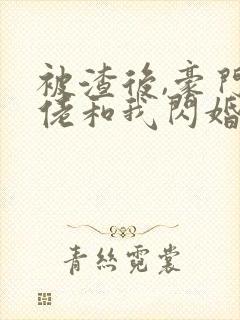 被渣後,豪門
佬和我閃婚
青絲霓裳